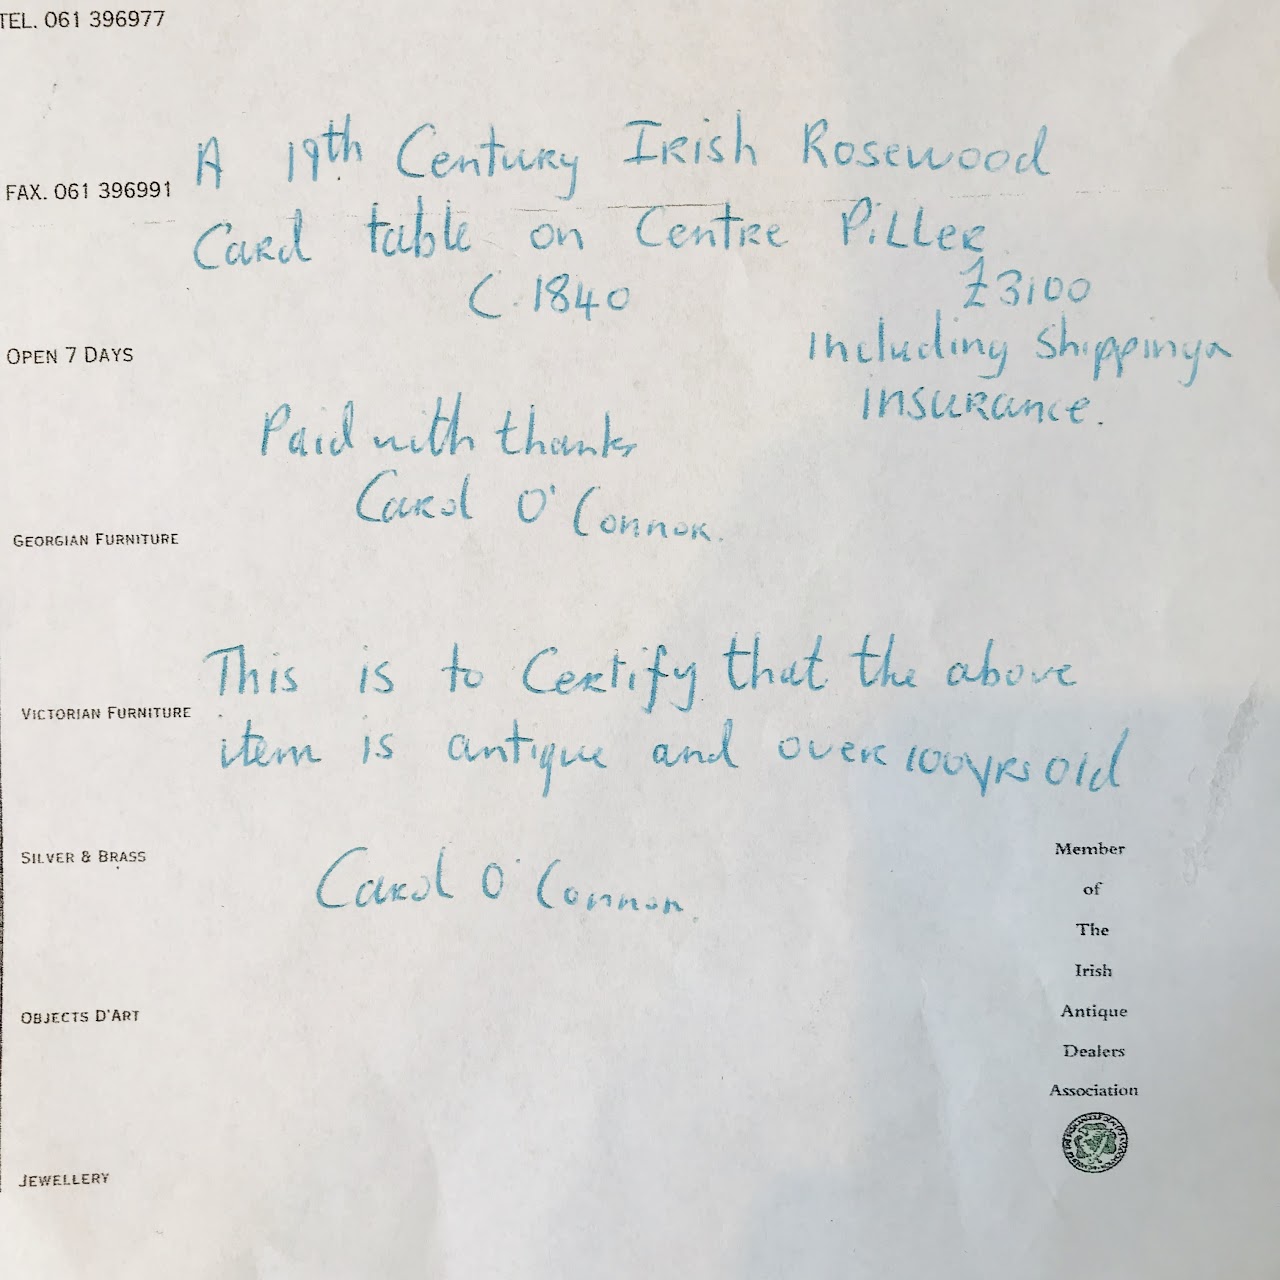 TEL. 061 396977
A 19th Century Irish Rosewood
FAX. 061 396991
Card table on Centre Piller
C. 1840
£3100
OPEN 7 DAYS
including shipping &
insurance.
Paid with thanks
Carol O'Connor.
GEORGIAN FURNITURE
This is to Certify that the above
VICTORIAN FURNITURE
item is antique and over 100yrs old
SILVER & BRASS
Carol O'Connor.
OBJECTS D'ART
JEWELLERY
Member
of
The
Irish
Antique
Dealers
Association